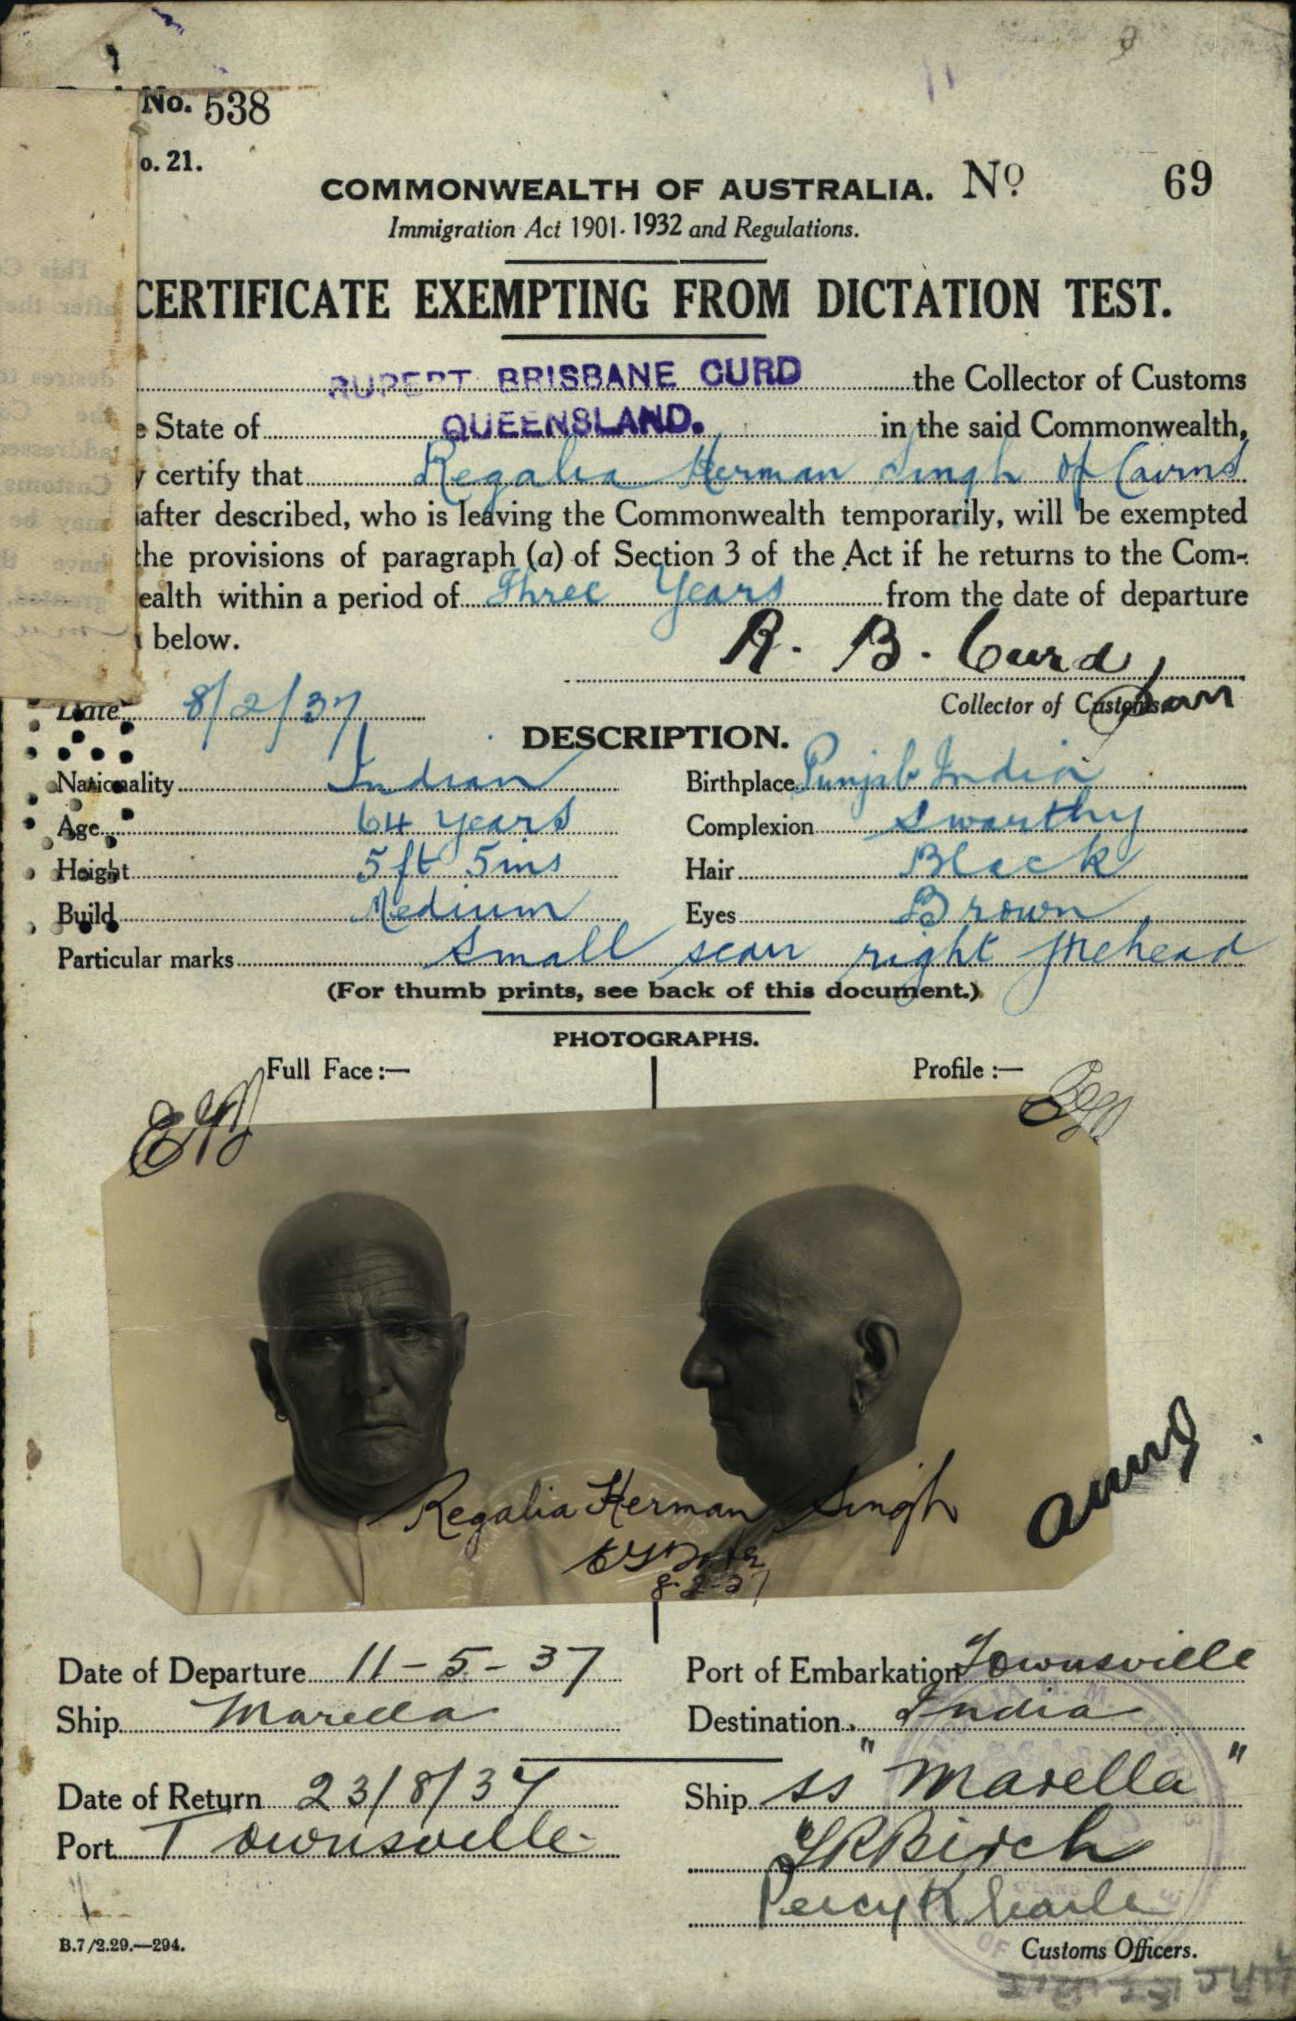 No. 538
o. 21.
COMMONWEALTH OF AUSTRALIA. No 69
Immigration Act 1901-1932 and Regulations.
CERTIFICATE EXEMPTING FROM DICTATION TEST.
RUPERT BRISBANE CURD the Collector of Customs
e State of QUEENSLAND. in the said Commonwealth,
y certify that Regalia Herman Singh of Cairns
after described, who is leaving the Commonwealth temporarily, will be exempted
the provisions of paragraph (a) of Section 3 of the Act if he returns to the Com-
ealth within a period of Three Years from the date of departure
below.
R. B. Curd
Collector of Customs
Date 8/2/37
DESCRIPTION.
Nationality Indian Birthplace Punjab India
Age 64 years Complexion Swarthy
Height 5 ft 5 ins Hair Black
Build Medium Eyes Brown
Particular marks Small scar right forehead
(For thumb prints, see back of this document.)
PHOTOGRAPHS.
Full Face :— Profile :—
Regalia Herman Singh
8-2-37
Date of Departure 11-5-37 Port of Embarkation Townsville
Ship Marella Destination India
Date of Return 23/8/37 Ship ss "Marella"
Port Townsville
Birch
Percy K Searle
B.7/2.29.—294.
Customs Officers.